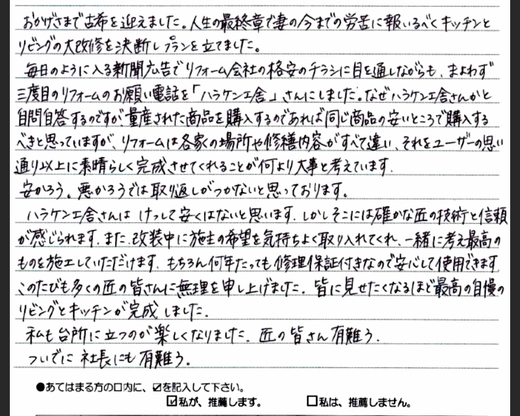 おかげさまで古希を迎えました。人生の最終章で妻の今までの労苦に報いるべくキッチンと
リビングの大改修を決断しプランを立てました。
毎日のように入る新聞広告でリフォーム会社の格安のチラシに目を通しながらも、まよわず
三度目のリフォームのお願い電話を「ハラケン工舎」さんにしました。なぜハラケン工舎さんかと
自問自答するのですが量産された商品を購入するのであれば同じ商品の安いところで購入する
べきと思っていますが、リフォームは各家の場所や修繕内容がすべて違い、それをユーザーの思い
通り以上に素晴らしく完成させてくれることが何より大事と考えています。
安かろう。悪かろうでは取り返しがつかないと思っております。
ハラケン工舎さんは けっして安くはないと思います。しかしそこには確かな匠の技術と信頼
が感じられます。また、改装中に施主の希望を気持ちよく取り入れてくれ、一緒に考え最高の
ものを施工していただけます。もちろん何年たっても修理保証付きなので安心して使用できます。
このたびも多くの匠の皆さんに無理を申し上げました。皆に見せたくなるほど最高の自慢の
リビングとキッチンが完成しました。
私も台所に立つのが楽しくなりました。匠の皆さん有難う。
ついでに 社長にも有難う。
●あてはまる方の口内に、☑を記入して下さい。
☑私が、推薦します。 □私は、推薦しません。